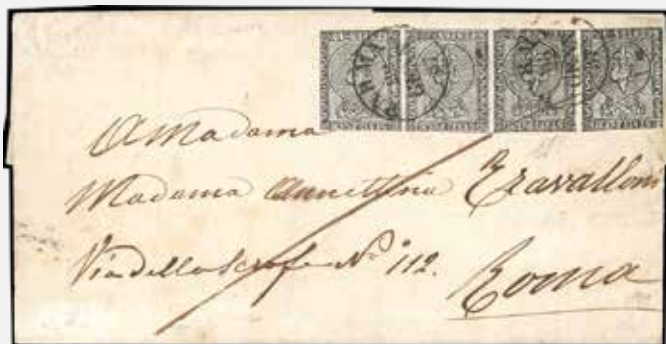 PARMA PARMA
A Madama
Madama Annettina Travalloni
Via della Scrofa No. 112.
Roma